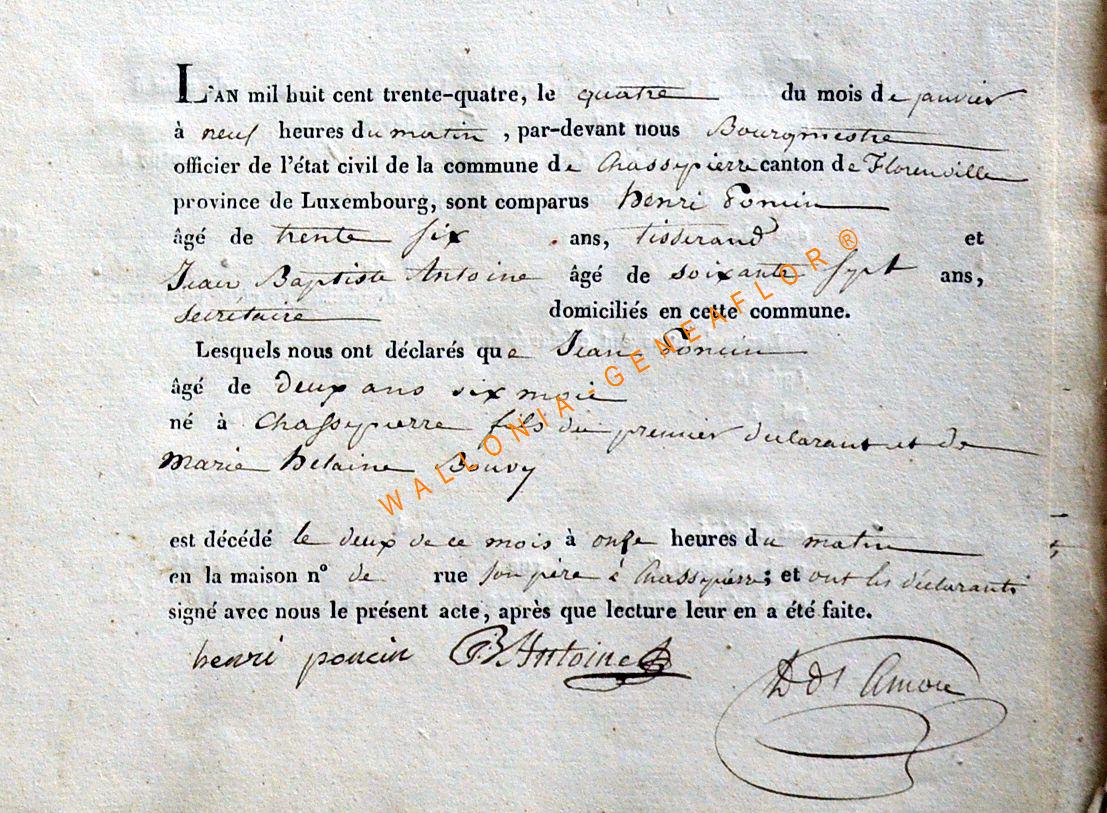 L'AN mil huit cent trente-quatre, le quatre du mois de janvier
à neuf heures du matin, par-devant nous Bourgmestre
officier de l'état civil de la commune de Chassepierre canton de Florenville
province de Luxembourg, sont comparus henri Poncin
âgé de trente six ans, tisserand et
Jean Baptiste Antoine âgé de soixante sept ans,
secrétaire domiciliés en cette commune.
Lesquels nous ont déclarés que Jean Poncin
âgé de deux ans six mois
né à Chassepierre fils du premier déclarant et de
Marie helaine Bouvy
est décédé le deux de ce mois à onze heures du matin
en la maison n° de rue son père à Chassepierre; et ont les déclarants
signé avec nous le présent acte, après que lecture leur en a été faite.
henri poncin JB Antoine
WALLONIA-GENEAFLOR®